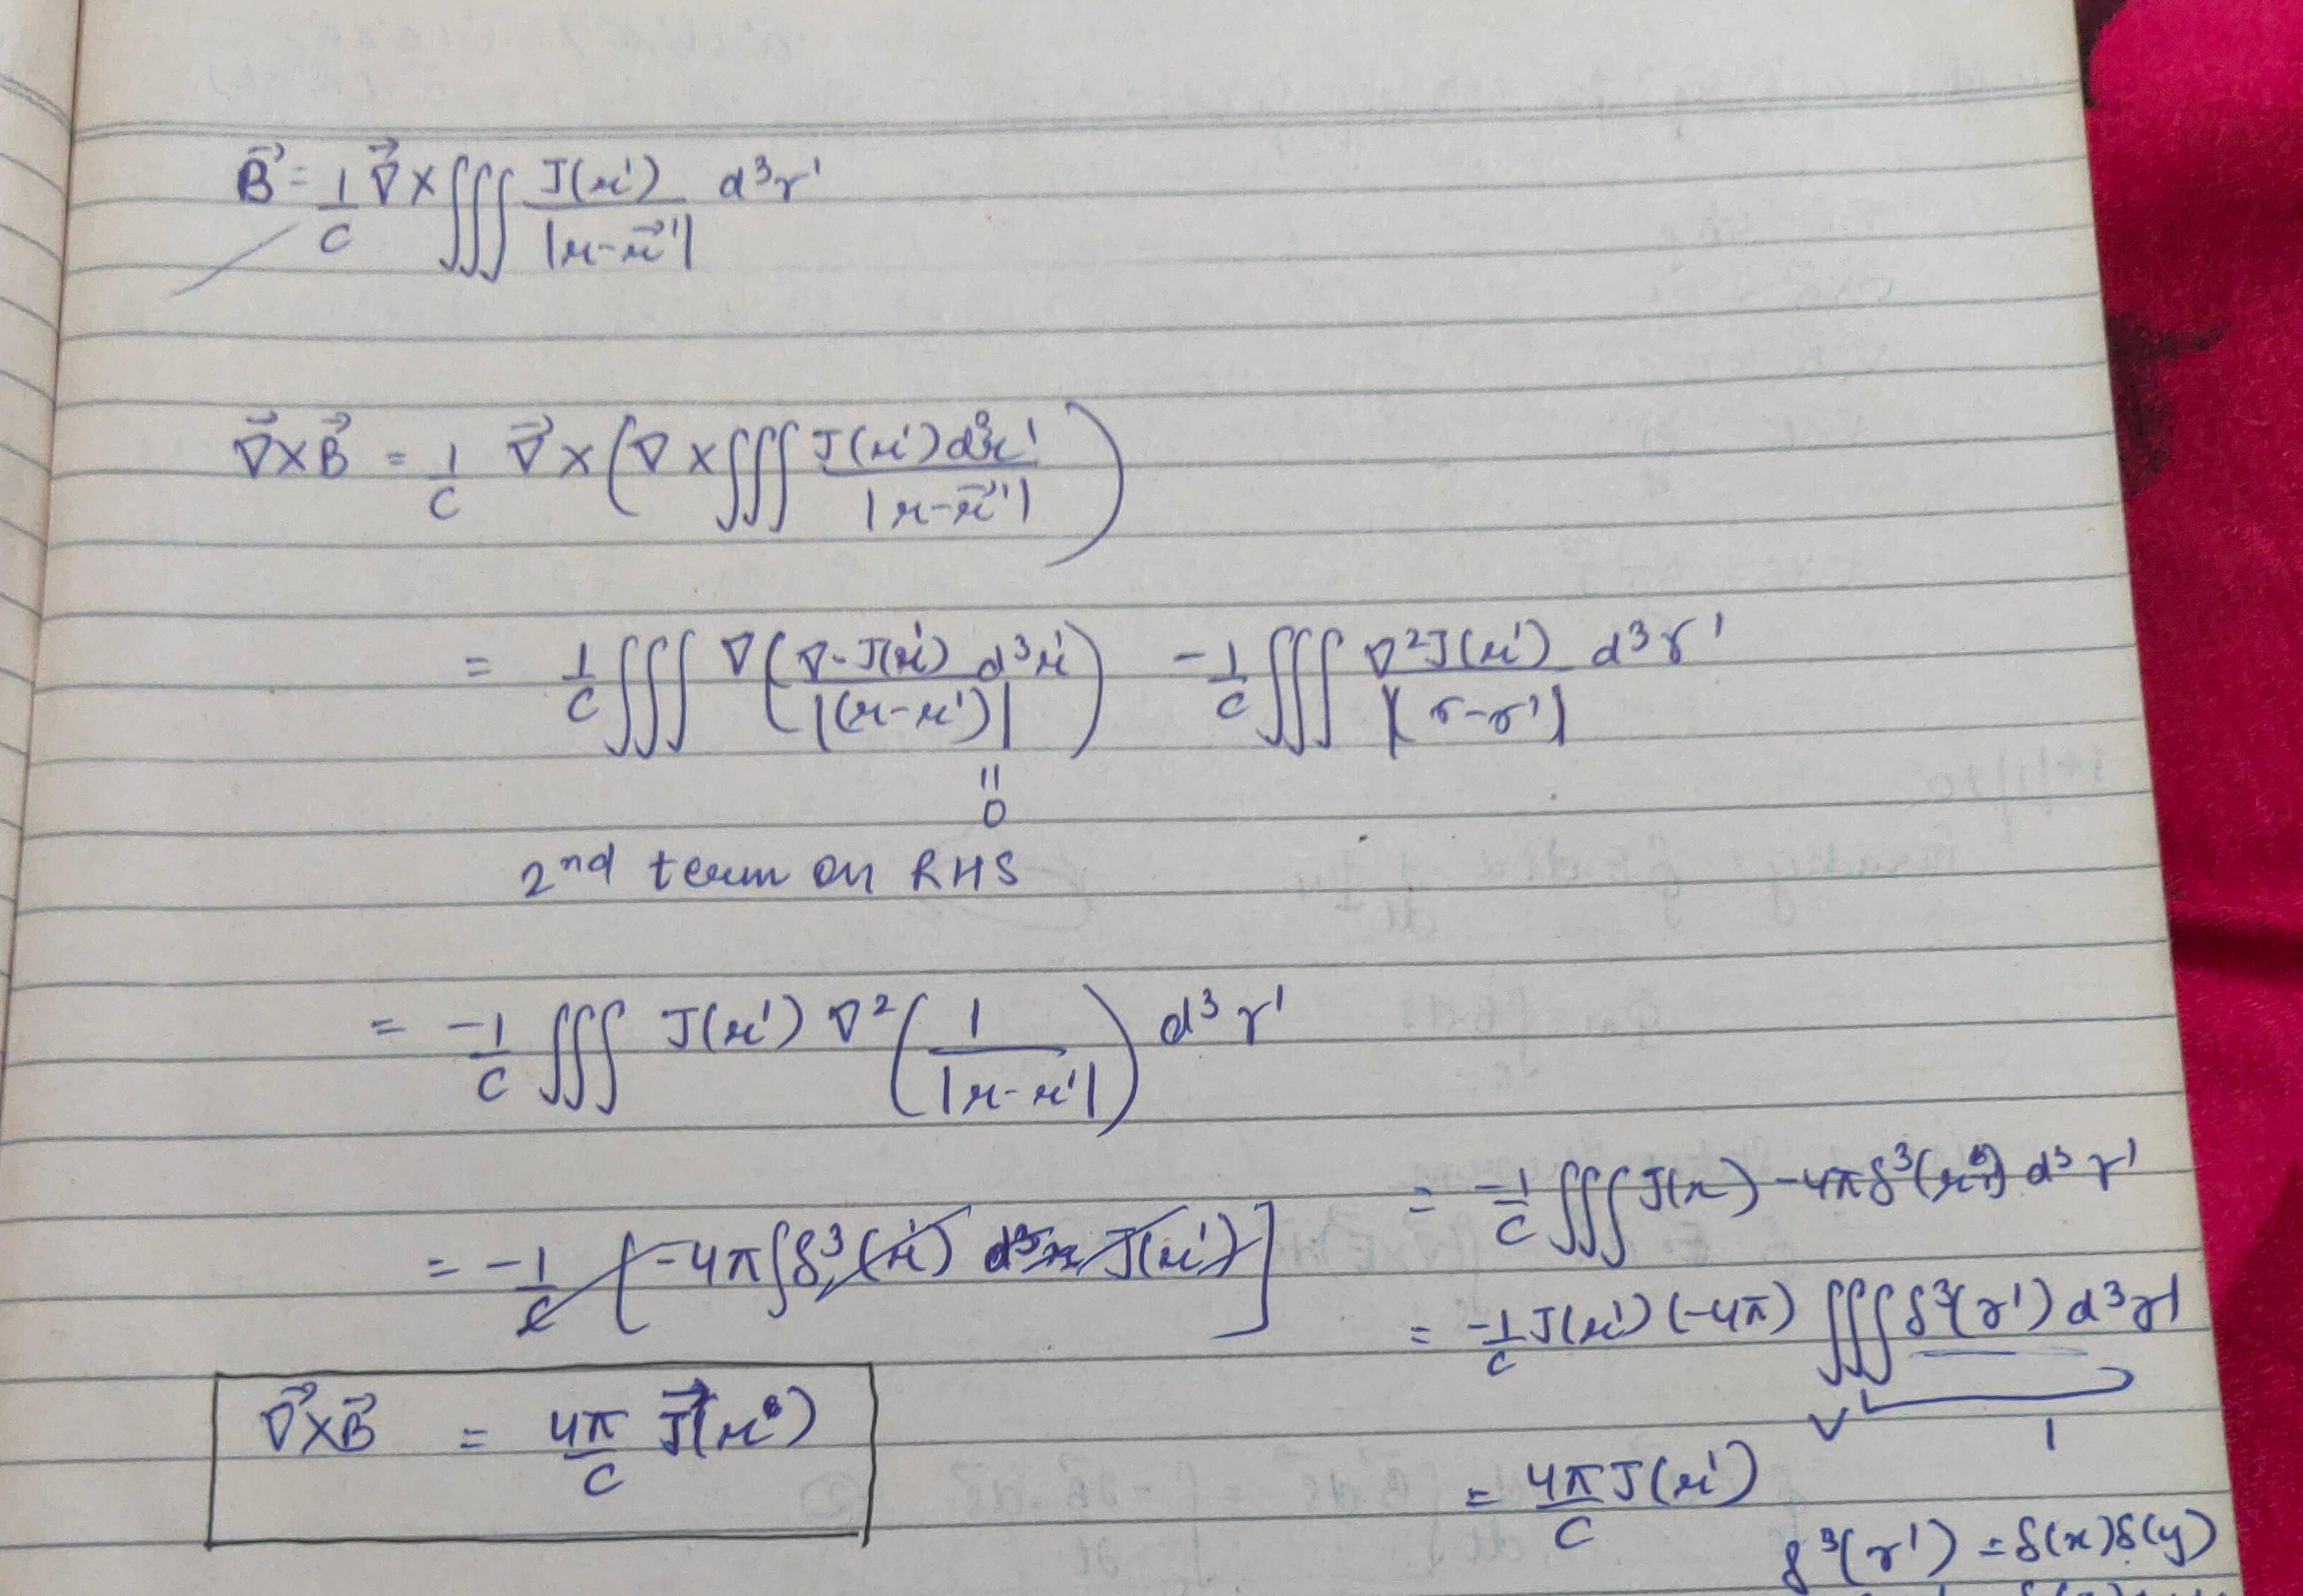 B⃗ = 1/C ∇⃗ × ∭ J(r') / |r-r⃗'| d³r'
∇⃗×B⃗ = 1/C ∇⃗ × (∇ × ∭ J(r') d³r' / |r-r⃗'|)
= 1/C ∭ ∇(∇·J(r') d³r' / |(r-r')|) - 1/C ∭ ∇²J(r') / |(r-r')| d³r'
||
0
2nd term on RHS
= -1/C ∭ J(r') ∇²(1 / |r-r'|) d³r'
= -1/C [-4π∫δ³(r') d³r J(r')]
= -1/C ∭ J(r) -4πδ³(r') d³r'
= -1/C J(r') (-4π) ∭ δ³(r') d³r'
V
1
= 4π/C J(r')
∇⃗×B⃗ = 4π/C J⃗(r)
δ³(r') = δ(x)δ(y)